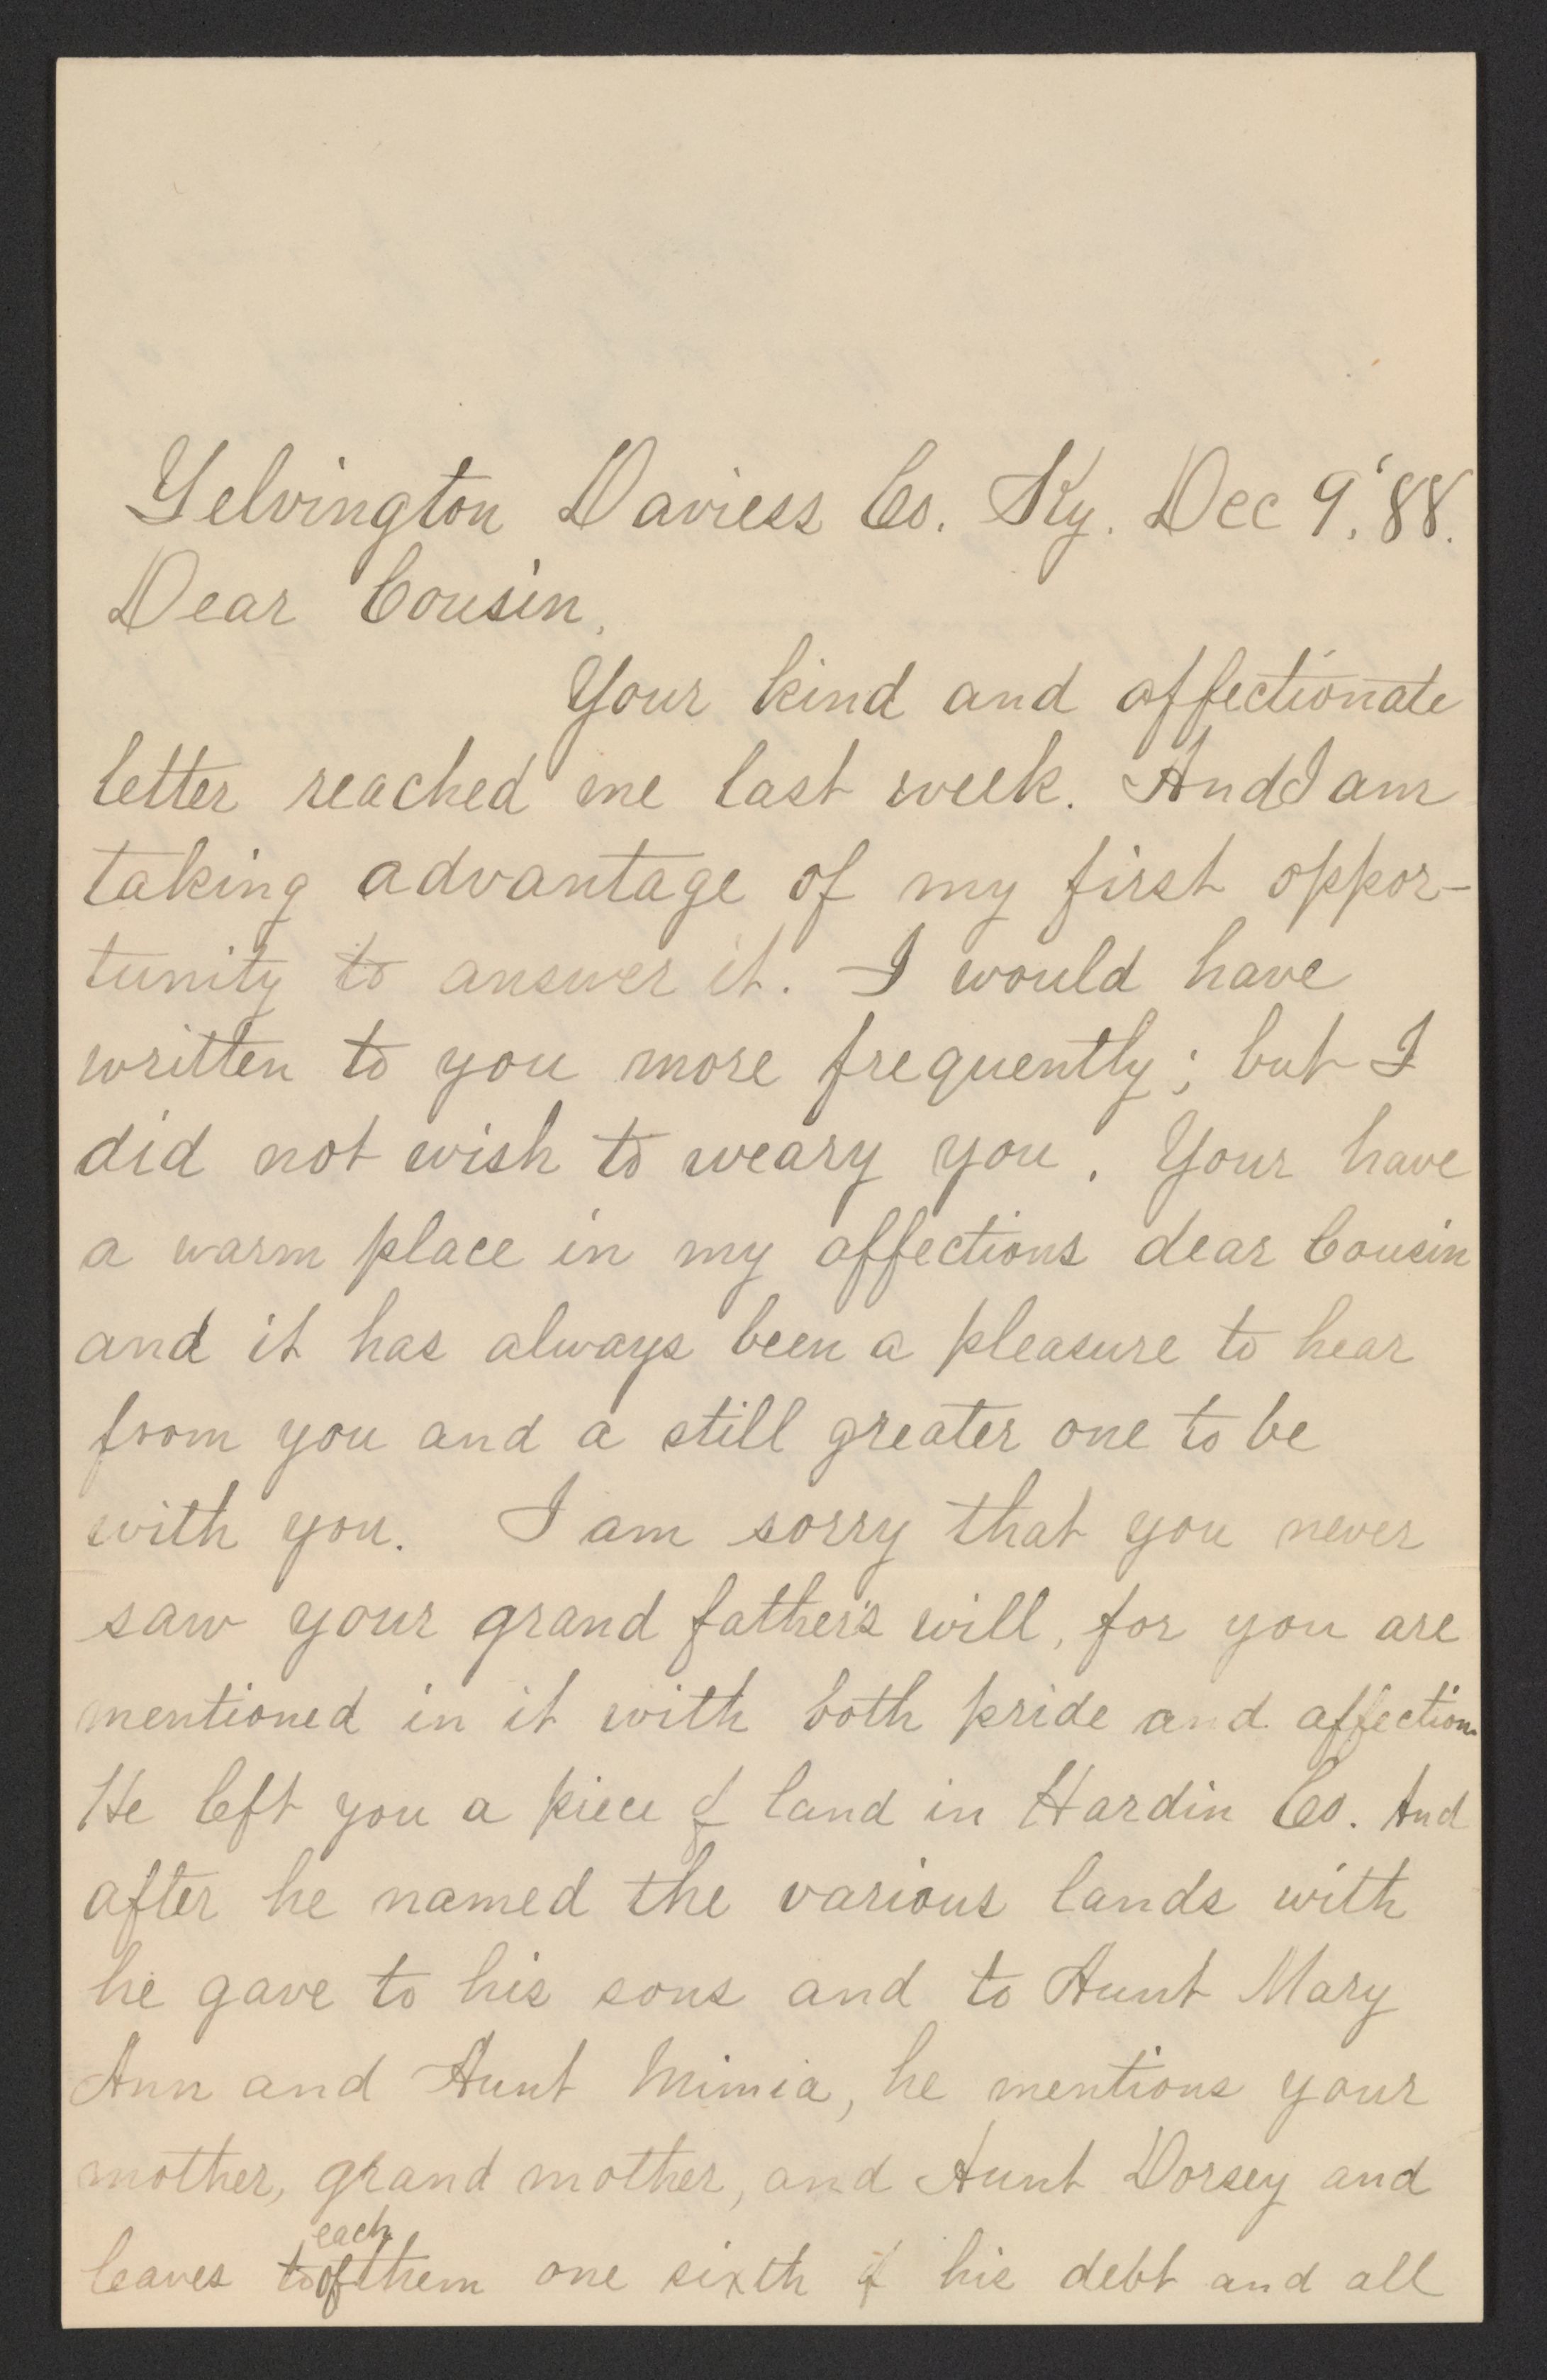 Yelvington Daviess Co. Ky. Dec 9,' 88.
Dear Cousin,
Your kind and affectionate
letter reached me last week. And I am
taking advantage of my first oppor-
tunity to answer it. I would have
written to you more frequently; but I
did not wish to weary you. Your have
a warm place in my affections dear Cousin
and it has always been a pleasure to hear
from you and a still greater one to be
with you. I am sorry that you never
saw your grand father's will, for you are
mentioned in it with both pride and affection
He left you a piece of land in Hardin Co. And
after he named the various lands with
he gave to his sons and to Aunt Mary
Ann and Aunt Mimia, he mentions your
mother, grand mother, and Aunt Dorsey and
each
leaves to of them one sixth of his debt and all